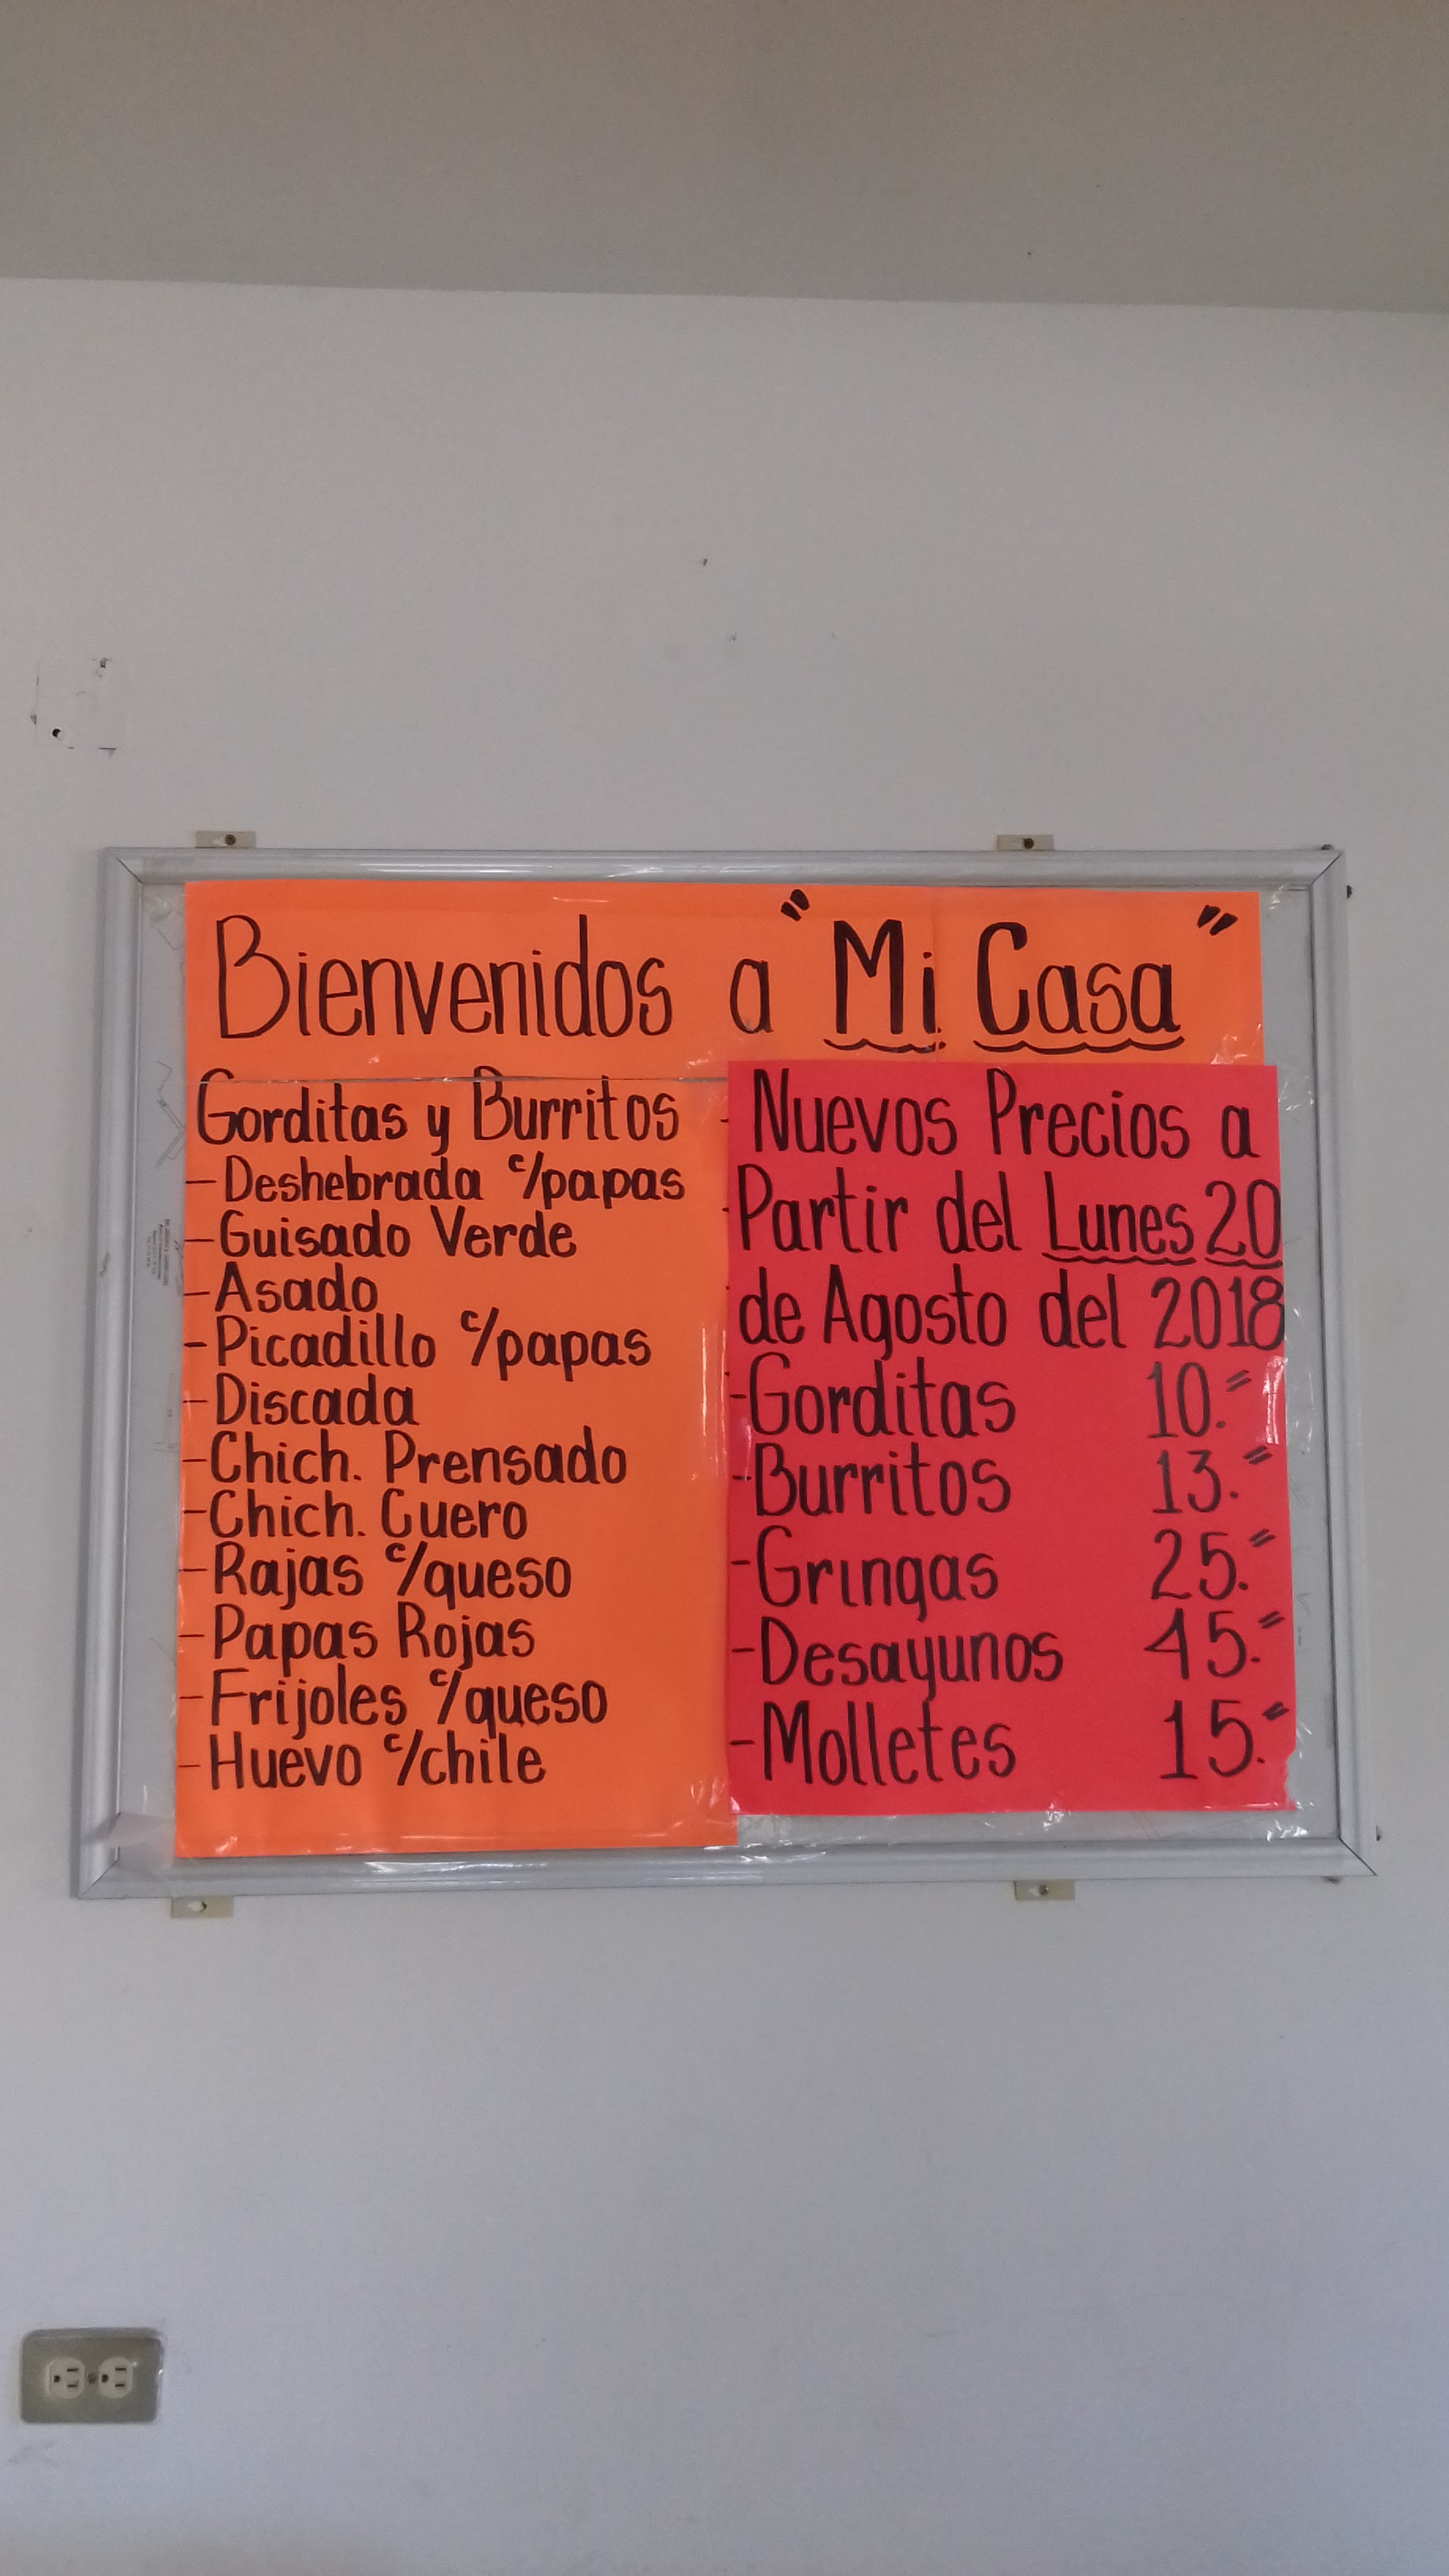 Bienvenidos a "Mi Casa"
Gorditas y Burritos
- Deshebrada c/papas
- Guisado Verde
- Asado
- Picadillo c/papas
- Discada
- Chich. Prensado
- Chich. Cuero
- Rajas c/queso
- Papas Rojas
- Frijoles c/queso
- Huevo c/chile
Nuevos Precios a
Partir del Lunes 20
de Agosto del 2018
- Gorditas 10.=
- Burritos 13.=
- Gringas 25.=
- Desayunos 45.=
- Molletes 15.=